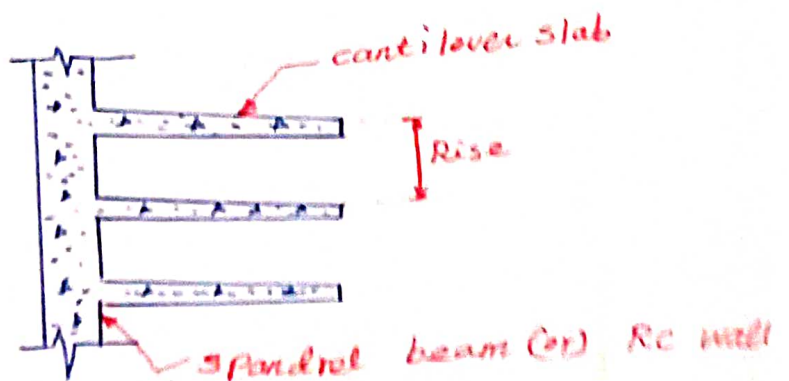 cantilever slab
Rise
spandrel beam (or) RC wall